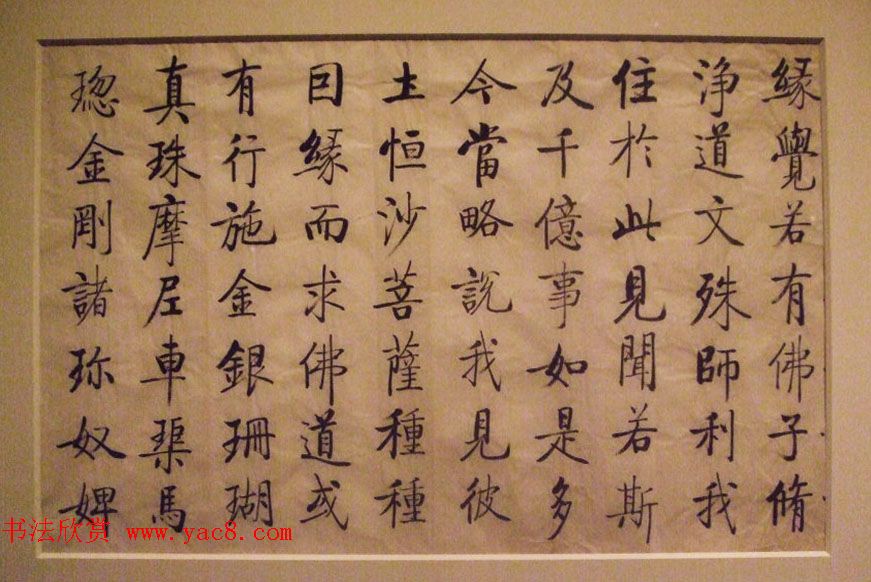 緣覺若有佛子脩
淨道文殊師利我
住於此見聞若斯
及千億事如是多
今當略說我見彼
土恒沙菩薩種種
因緣而求佛道或
有行施金銀珊瑚
真珠摩尼車𤦲馬
瑙金剛諸珎奴婢
书法欣赏 www.yac8.com